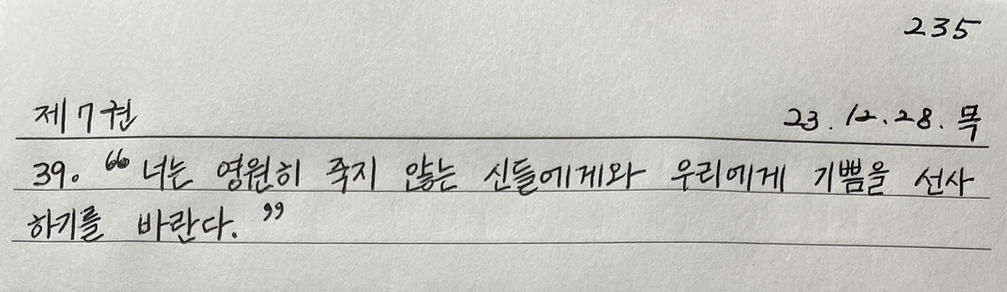 235
제 7권 23. 12. 28. 목
39. “너는 영원히 죽지 않는 신들에게와 우리에게 기쁨을 선사
하기를 바란다.”